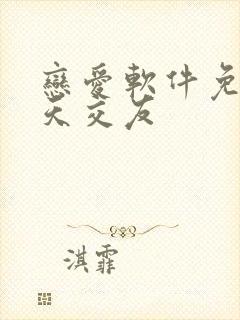 戀愛軟件免
天交友
淇霏